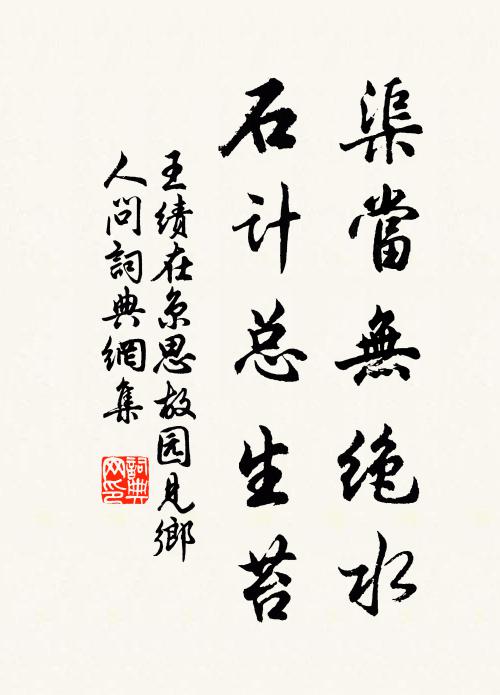 渠當無絶水
石计总生苔
王绩在京思故园見鄉
人問詞典網集
詞典
网印